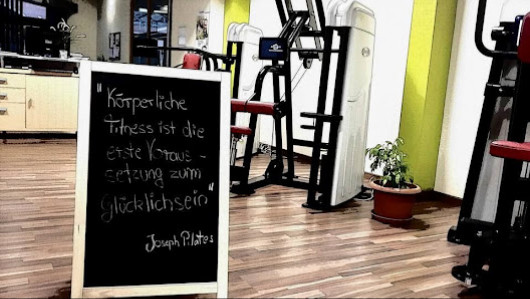 "Körperliche
Fitness ist die
erste Voraus-
setzung zum
Glücklichsein"
Joseph Pilates